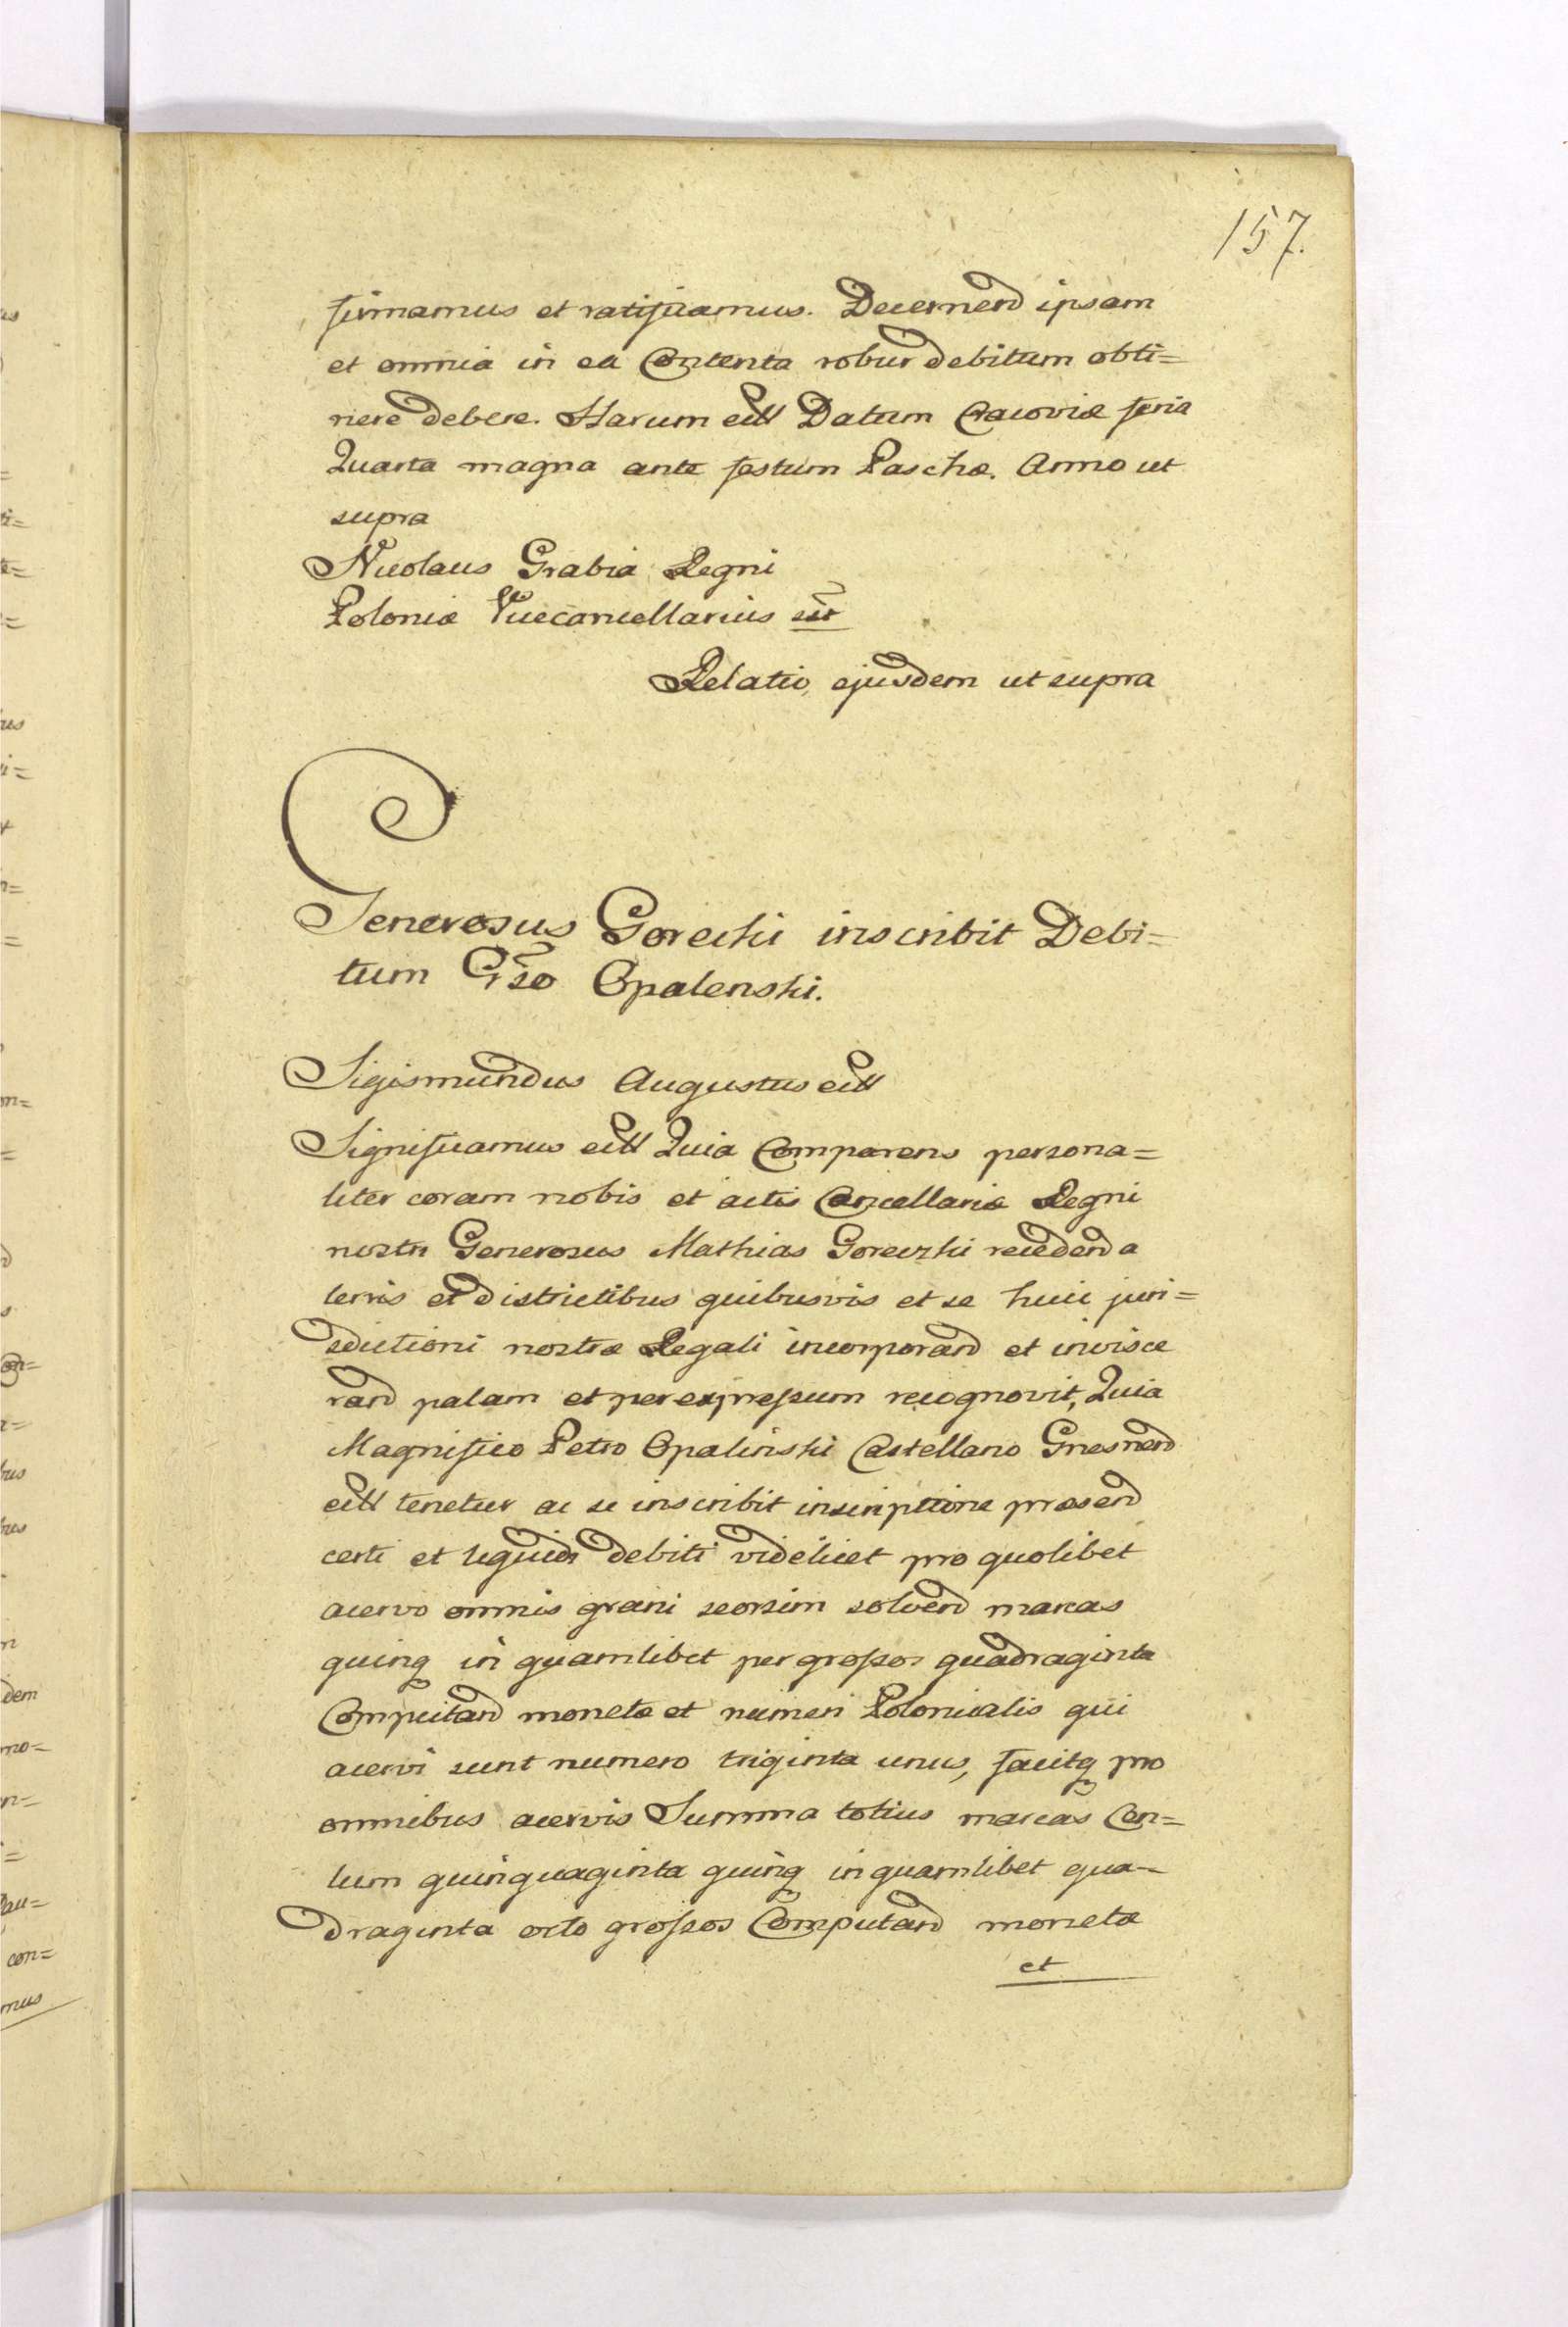 157.
firmamus et ratificamus. Decernend ipsam
et omnia in ea Contenta robur debitum obti=
nere debere. Harum ett Datum Cracoviæ feria
Quarta magna ante festum Paschæ. Anno ut
supra
Nicolaus Grabia Regni
Poloniæ Vicecancellarius sst
Relatio ejusdem ut supra
Generosus Gorecki inscribit Debi=
tum Gnso Opalenski.
Sigismundus Augustus ett
Significamus ett Quia Comparens persona=
liter coram nobis et actis Cancellariæ Regni
nostri Generosus Mathias Goreczki recedend a
terris et districtibus quibusvis et se huic juri=
sdictioni nostræ Regali incorporand et invisce
rand palam et per expressum recognovit, Quia
Magnifico Petro Opalinski Castellano Gnesnend
ett tenetur ac se inscribit inscriptione præsend
certi et liquidi debiti videlicet pro quolibet
acervo omnis grani seorsim solvend marcas
quinq in quamlibet per grossos quadraginta
Computand monetæ et numeri Polonicalis qui
acervi sunt numero triginta unus, facitq pro
omnibus acervis Summa totius marcas Cen=
tum quinquaginta quinq in quamlibet qua=
draginta octo grossos Computand monetæ
et